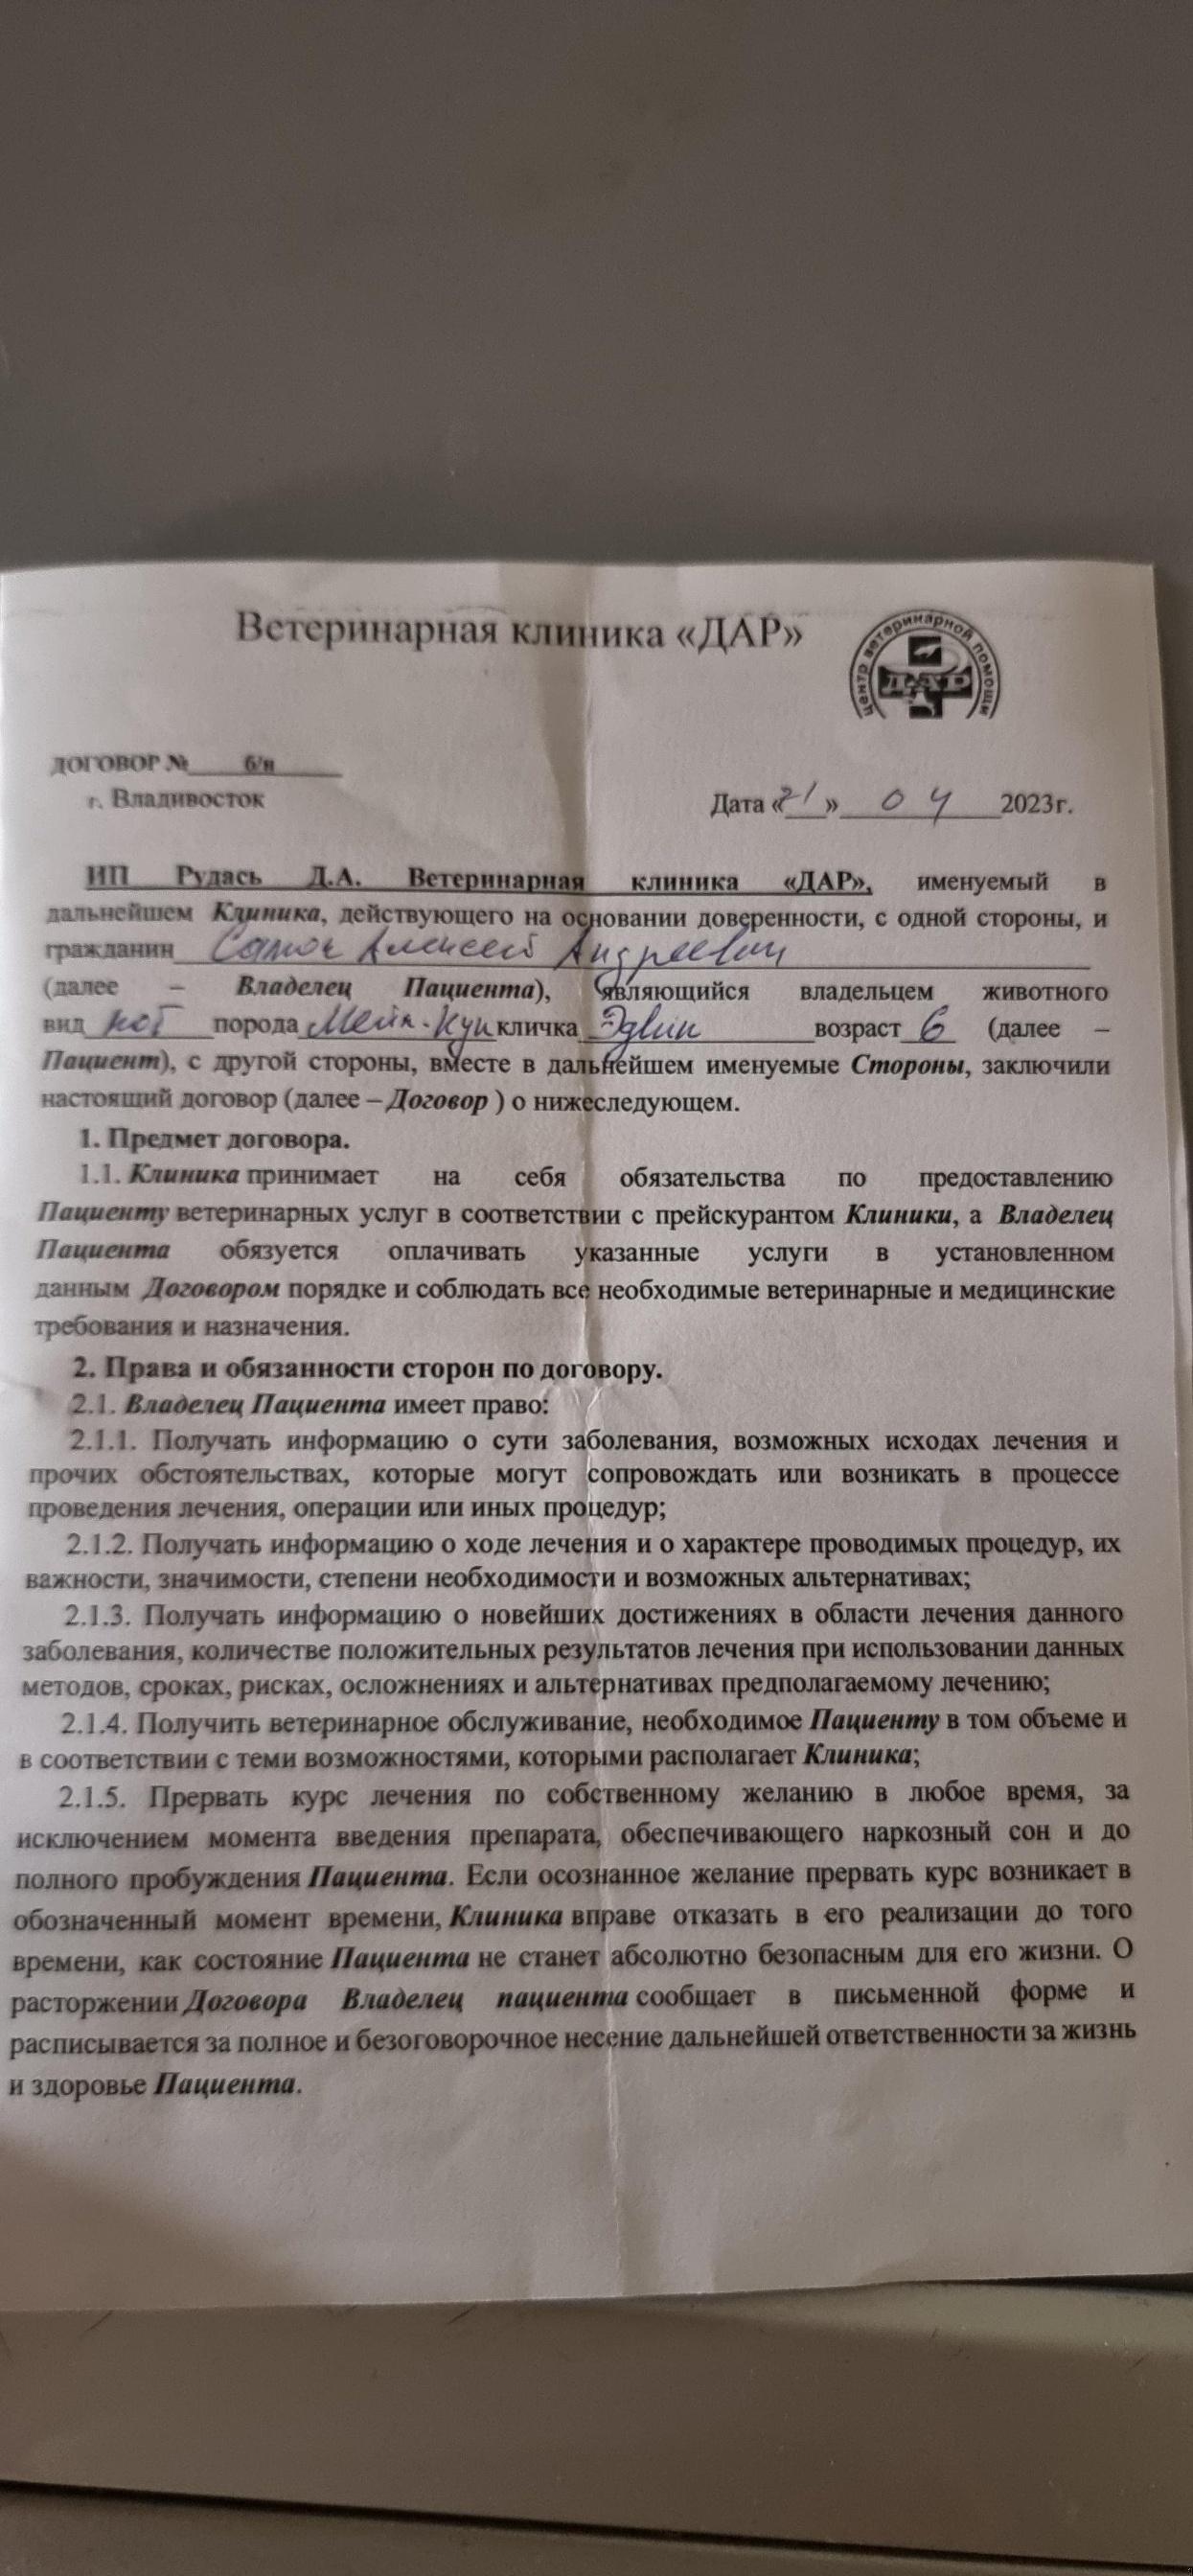 Ветеринарная клиника «ДАР»
центр ветеринарной помощи
ДАР
ДОГОВОР № б/н
г. Владивосток
Дата «21» 04 2023г.
ИП Рудась Д.А. Ветеринарная клиника «ДАР», именуемый в
дальнейшем Клиника, действующего на основании доверенности, с одной стороны, и
гражданин Алексей Андреевич
(далее – Владелец Пациента), являющийся владельцем животного
вид кот порода Мейн-Кун кличка Эдвин возраст 6 (далее –
Пациент), с другой стороны, вместе в дальнейшем именуемые Стороны, заключили
настоящий договор (далее – Договор ) о нижеследующем.
1. Предмет договора.
1.1. Клиника принимает на себя обязательства по предоставлению
Пациенту ветеринарных услуг в соответствии с прейскурантом Клиники, а Владелец
Пациента обязуется оплачивать указанные услуги в установленном
данным Договором порядке и соблюдать все необходимые ветеринарные и медицинские
требования и назначения.
2. Права и обязанности сторон по договору.
2.1. Владелец Пациента имеет право:
2.1.1. Получать информацию о сути заболевания, возможных исходах лечения и
прочих обстоятельствах, которые могут сопровождать или возникать в процессе
проведения лечения, операции или иных процедур;
2.1.2. Получать информацию о ходе лечения и о характере проводимых процедур, их
важности, значимости, степени необходимости и возможных альтернативах;
2.1.3. Получать информацию о новейших достижениях в области лечения данного
заболевания, количестве положительных результатов лечения при использовании данных
методов, сроках, рисках, осложнениях и альтернативах предполагаемому лечению;
2.1.4. Получить ветеринарное обслуживание, необходимое Пациенту в том объеме и
в соответствии с теми возможностями, которыми располагает Клиника;
2.1.5. Прервать курс лечения по собственному желанию в любое время, за
исключением момента введения препарата, обеспечивающего наркозный сон и до
полного пробуждения Пациента. Если осознанное желание прервать курс возникает в
обозначенный момент времени, Клиника вправе отказать в его реализации до того
времени, как состояние Пациента не станет абсолютно безопасным для его жизни. О
расторжении Договора Владелец пациента сообщает в письменной форме и
расписывается за полное и безоговорочное несение дальнейшей ответственности за жизнь
и здоровье Пациента.